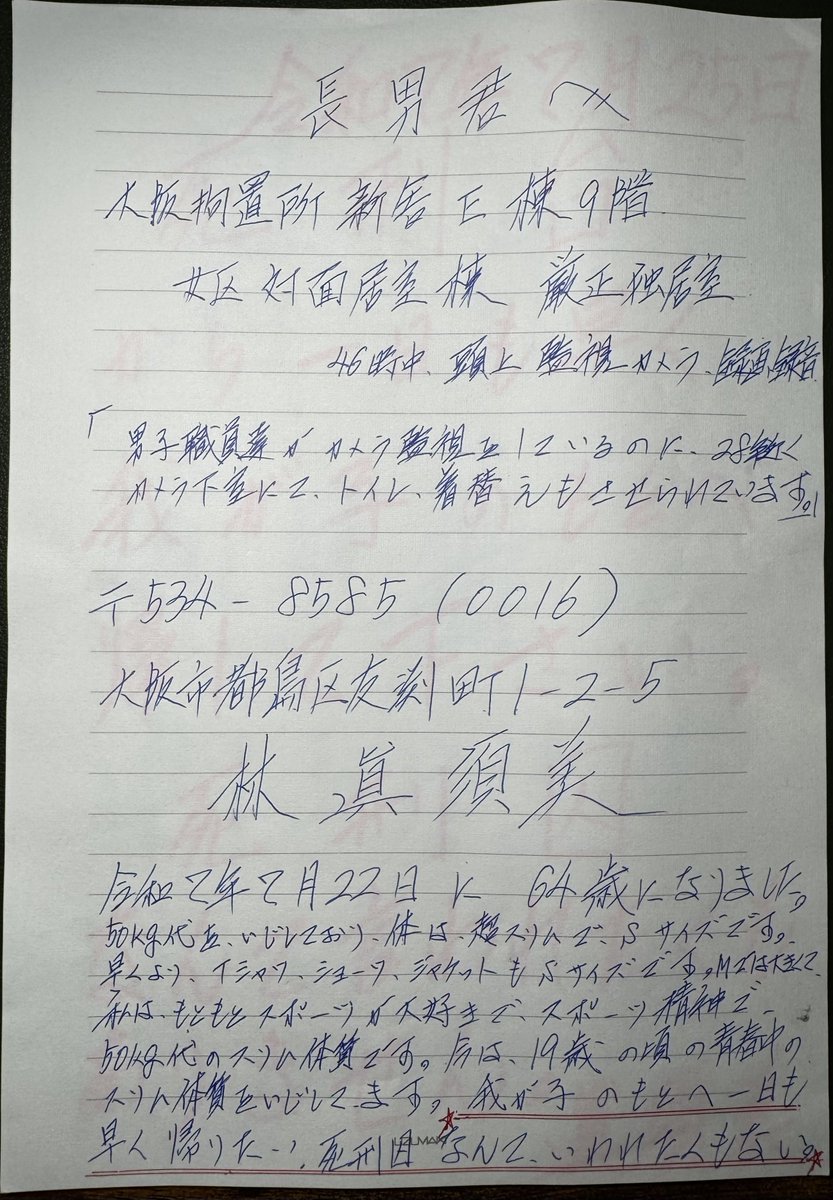 長男君へ
大阪拘置所 新舎E棟9階
女区 対面居室棟 厳正独居室
46時中、頭上監視カメラ、録画、録音
「男子職員達がカメラ監視をしているのに、28年近く
カメラ下室にて、トイレ、着替えもさせられています。」
〒534-8585(0016)
大阪市都島区友渕町1-2-5
林 眞須美
令和7年7月22日に 64歳になりました。
50kg代を、いじしており、体は、超スリムで、Sサイズです。
早くより、Tシャツ、ショーツ、ジャケットもSサイズです。Mでは大きくて、
私は、もともとスポーツが大好きで、スポーツ精神で、
50kg代のスリム体質です。今は、19歳の頃の青春中の
スリム体質をいじしてます。我が子のもとへ一日も
早く帰りたい、死刑囚なんて、いわれたくもない。